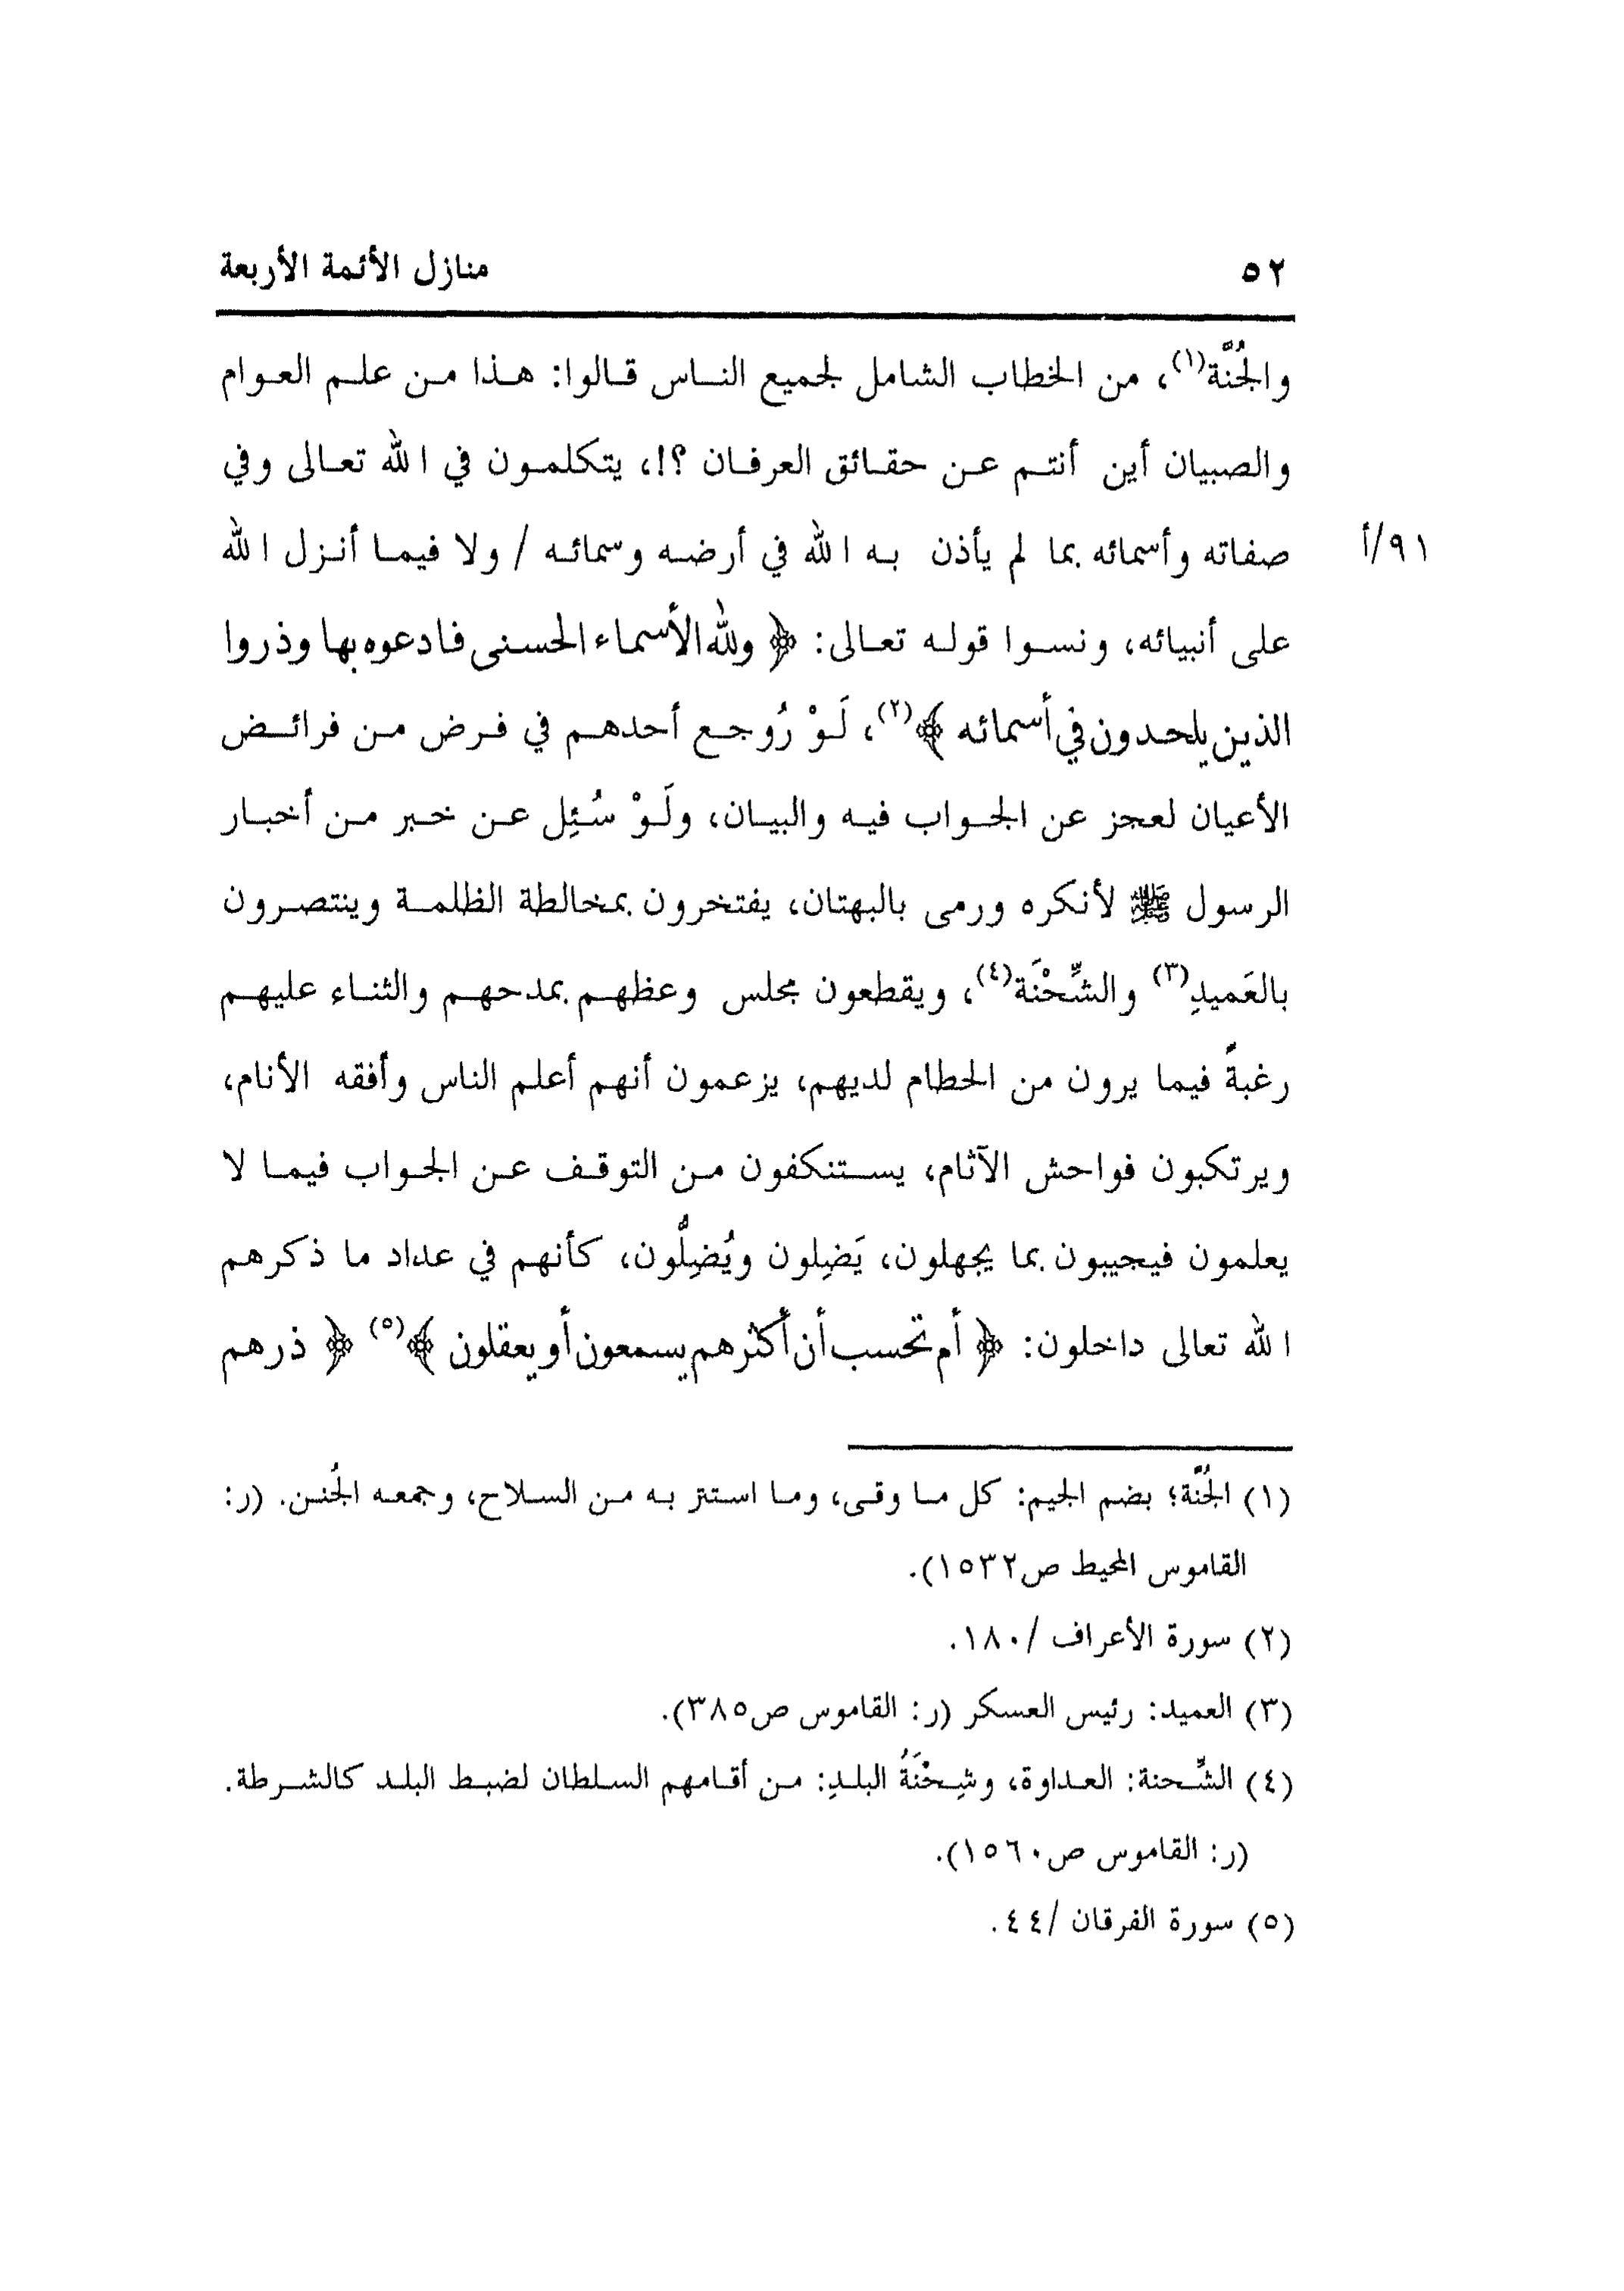 ٥٢ منازل الأئمة الأربعة
والجُنَّة(١)، من الخطاب الشامل لجميع الناس قالوا: هذا من علم العوام
والصبيان أين أنتم عن حقائق العرفان ؟!، يتكلمون في الله تعالى وفي
صفاته وأسمائه بما لم يأذن به الله في أرضه وسمائه / ولا فيما أنزل الله
٩١/أ
على أنبيائه، ونسوا قوله تعالى: ﴿ ولله الأسماء الحسنى فادعوه بها وذروا
الذين يلحدون في أسمائه ﴾(٢)، لَوْ رُوجع أحدهم في فرض من فرائض
الأعيان لعجز عن الجواب فيه والبيان، ولَوْ سُئِل عن خبر من أخبار
الرسول ﷺ لأنكره ورمى بالبهتان، يفتخرون بمخالطة الظلمة وينتصرون
بالعَميدِ(٣) والشِّحْنَة(٤)، ويقطعون مجلس وعظهم بمدحهم والثناء عليهم
رغبةً فيما يرون من الحطام لديهم، يزعمون أنهم أعلم الناس وأفقه الأنام،
ويرتكبون فواحش الآثام، يستنكفون من التوقف عن الجواب فيما لا
يعلمون فيجيبون بما يجهلون، يَضِلون ويُضِلُّون، كأنهم في عداد ما ذكرهم
الله تعالى داخلون: ﴿ أم تحسب أن أكثرهم يسمعون أو يعقلون ﴾(٥) ﴿ ذرهم
(١) الجُنَّة؛ بضم الجيم: كل ما وقى، وما استتر به من السلاح، وجمعه الجُنن. (ر:
القاموس المحيط ص١٥٣٢).
(٢) سورة الأعراف /١٨٠.
(٣) العميد: رئيس العسكر (ر: القاموس ص٣٨٥).
(٤) الشِّحنة: العداوة، وشِحْنَةُ البلدِ: من أقامهم السلطان لضبط البلد كالشرطة.
(ر: القاموس ص١٥٦٠).
(٥) سورة الفرقان /٤٤.